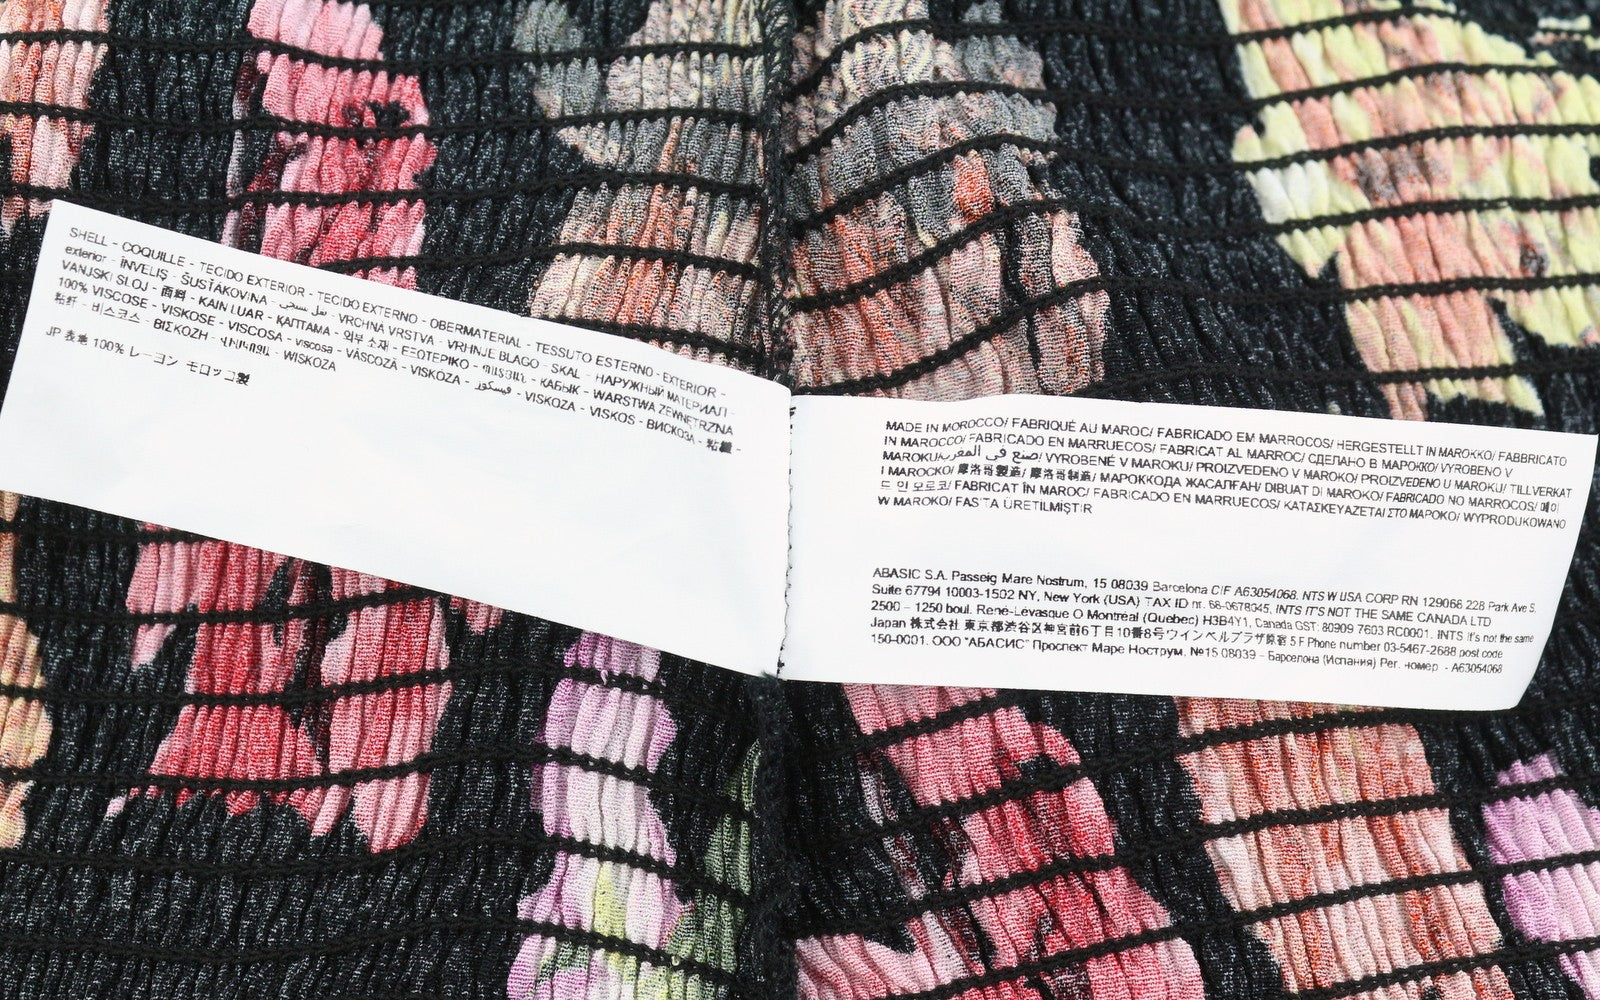 SHELL - COQUILLE - TECIDO EXTERIOR - TECIDO EXTERNO - OBERMATERIAL - TESSUTO ESTERNO - EXTERIOR -
exterior - ÎNVELIŞ - ŠUSŤÁKOVINA - VRCHNÁ VRSTVA - VRHNJE BLAGO - SKAL - НАРУЖНЫЙ МАТЕРИАЛ -
VANJSKI SLOJ - 面料 - KAIN LUAR - ҚАПТАМА - 외부 소재 - ΕΞΩΤΕΡΙΚΟ - ҚАБЫҚ - WARSTWA ZEWNĘTRZNA
100% VISCOSE - VISKOSE - VISCOSA - viscosa - VÂSCOZĂ - VISKÓZA - فيسكوز - VISKOZA - VISKOS - ВИСКОЗА - 粘纖 -
粘纤 - 비스코스 - ΒΙΣΚΟΖΗ - WISKOZA
JP 表地 100% レーヨン モロッコ製
MADE IN MOROCCO/ FABRIQUÉ AU MAROC/ FABRICADO EM MARROCOS/ HERGESTELLT IN MAROKKO/ FABBRICATO
IN MAROCCO/ FABRICADO EN MARRUECOS/ FABRICAT AL MARROC/ СДЕЛАНО В МАРОККО/ VYROBENO V
MAROKU/صنع في المغرب/ VYROBENÉ V MAROKU/ PROIZVEDENO V MAROKO/ PROIZVEDENO U MAROKU/ TILLVERKAT
I MAROCKO/ 摩洛哥製造/ 摩洛哥制造/ МАРОККОДА ЖАСАЛҒАН/ DIBUAT DI MAROKO/ FABRICADO NO MARROCOS/ 메이
드 인 모로코/ FABRICAT ÎN MAROC/ FABRICADO EN MARRUECOS/ ΚΑΤΑΣΚΕΥΑΖΕΤΑΙ ΣΤΟ ΜΑΡΟΚΟ/ WYPRODUKOWANO
W MAROKO/ FAS'TA ÜRETILMIŞTIR
ABASIC S.A. Passeig Mare Nostrum, 15 08039 Barcelona CIF A63054068. NTS W USA CORP RN 129066 228 Park Ave S.
Suite 67794 10003-1502 NY, New York (USA) TAX ID nr. 68-0678045, INTS IT'S NOT THE SAME CANADA LTD
2500 - 1250 boul. René-Lévasque O Montréal (Quebec) H3B4Y1, Canada GST: 80909 7603 RC0001. INTS it's not the same
Japan 株式会社 東京都渋谷区神宮前6丁目10番8号ウインベルプラザ原宿 5 F Phone number 03-5467-2688 post code
150-0001. ООО "АБАСИС" Проспект Маре Нострум, №15 08039 - Барселона (Испания) Рег. номер - A63054068